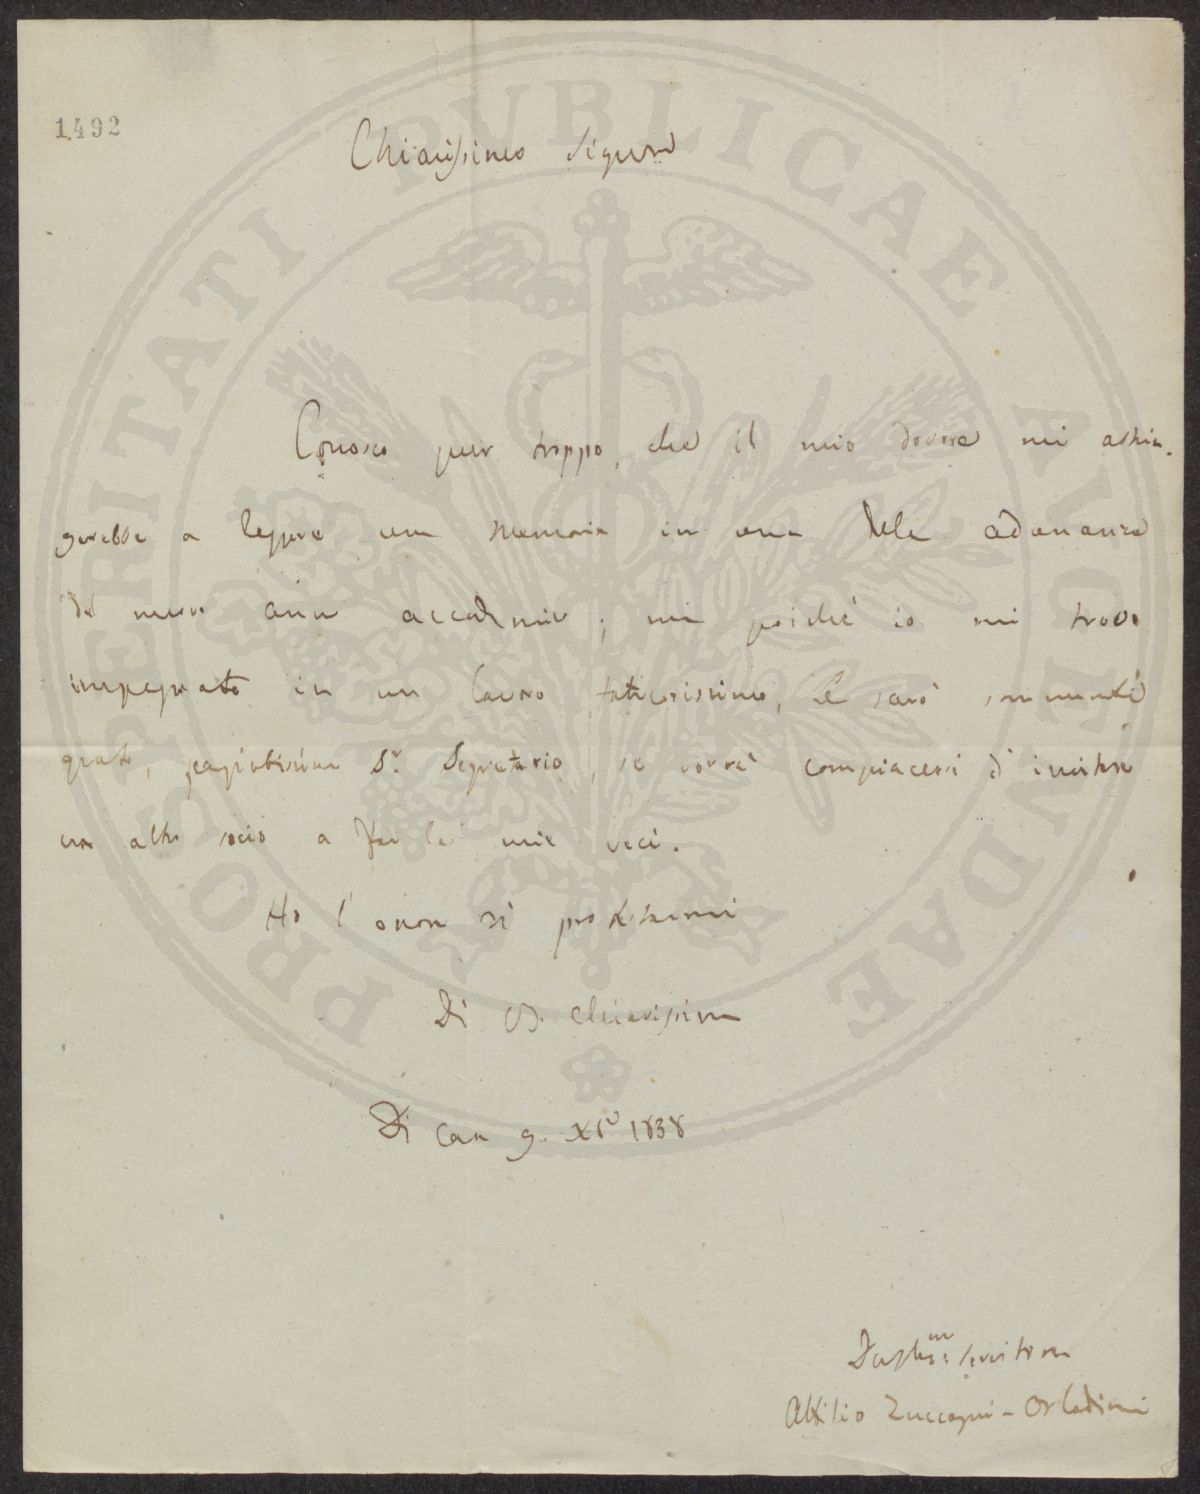 1492
PROSPERITATI PUBLICAE AUGENDAE
Chiarissimo Signore
Conosco pur troppo, che il mio dovere mi astrin-
gerebbe a leggere una Memoria in una delle adunanze
del nuovo anno accademico; ma poiché io mi trovo
impegnato in un lavoro faticosissimo, Le sarò sommamente
grato, pregiatissimo Sr. Segretario, se vorrà compiacersi d'invitare
un altro socio a far le mie veci.
Ho l'onore di protestarmi
Di VS. Chiarissima
Di Casa 9. Xbre 1838
servitore
Attilio Zuccagni-Orlandini